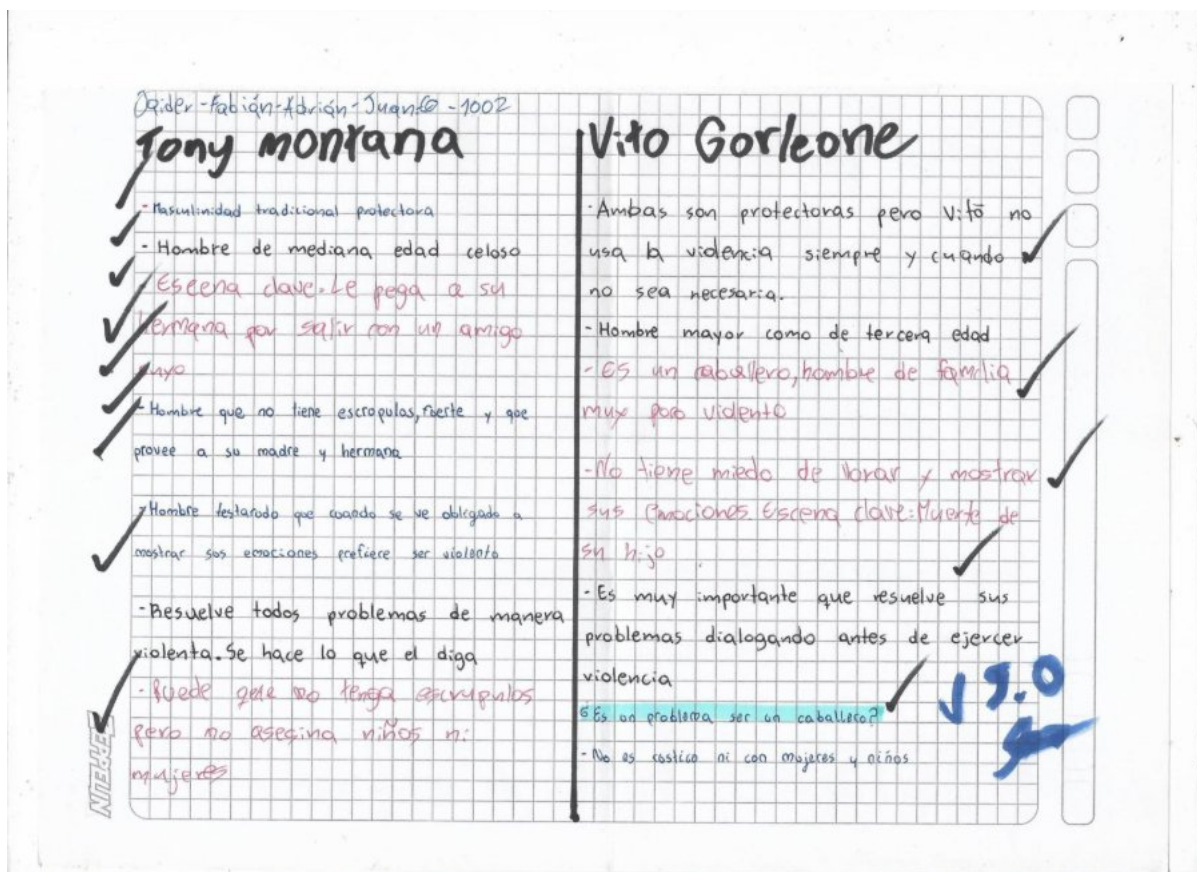 Jaider-Fabián-Adrián-Juan -1002
Tony montana
- Masculinidad tradicional protectora
- Hombre de mediana edad celoso
- Escena clave. Le pega a su
hermana por salir con un amigo
suyo
- Hombre que no tiene escropulas, fuerte y que
provee a su madre y hermana
- Hombre testarudo que cuando se ve oblegado a
mostrar sus emociones prefiere ser violento
- Resuelve todos problemas de manera
violenta. Se hace lo que el diga
- Puede que no tenga escrupulos
pero no asecina niños ni
mujeres
ZEPPELIN
Vito Gorleone
- Ambas son protectoras pero Vito no
usa la violencia siempre y cuando
no sea necesaria.
- Hombre mayor como de tercera edad
- Es un caballero, hombre de familia
muy poco violento
- No tiene miedo de llorar y mostrar
sus emociones. Escena clave: Muerte de
su hijo
- Es muy importante que resuelve sus
problemas dialogando antes de ejercer
violencia
¿Es un problema ser un caballero?
- No es costico ni con mujeres y niños